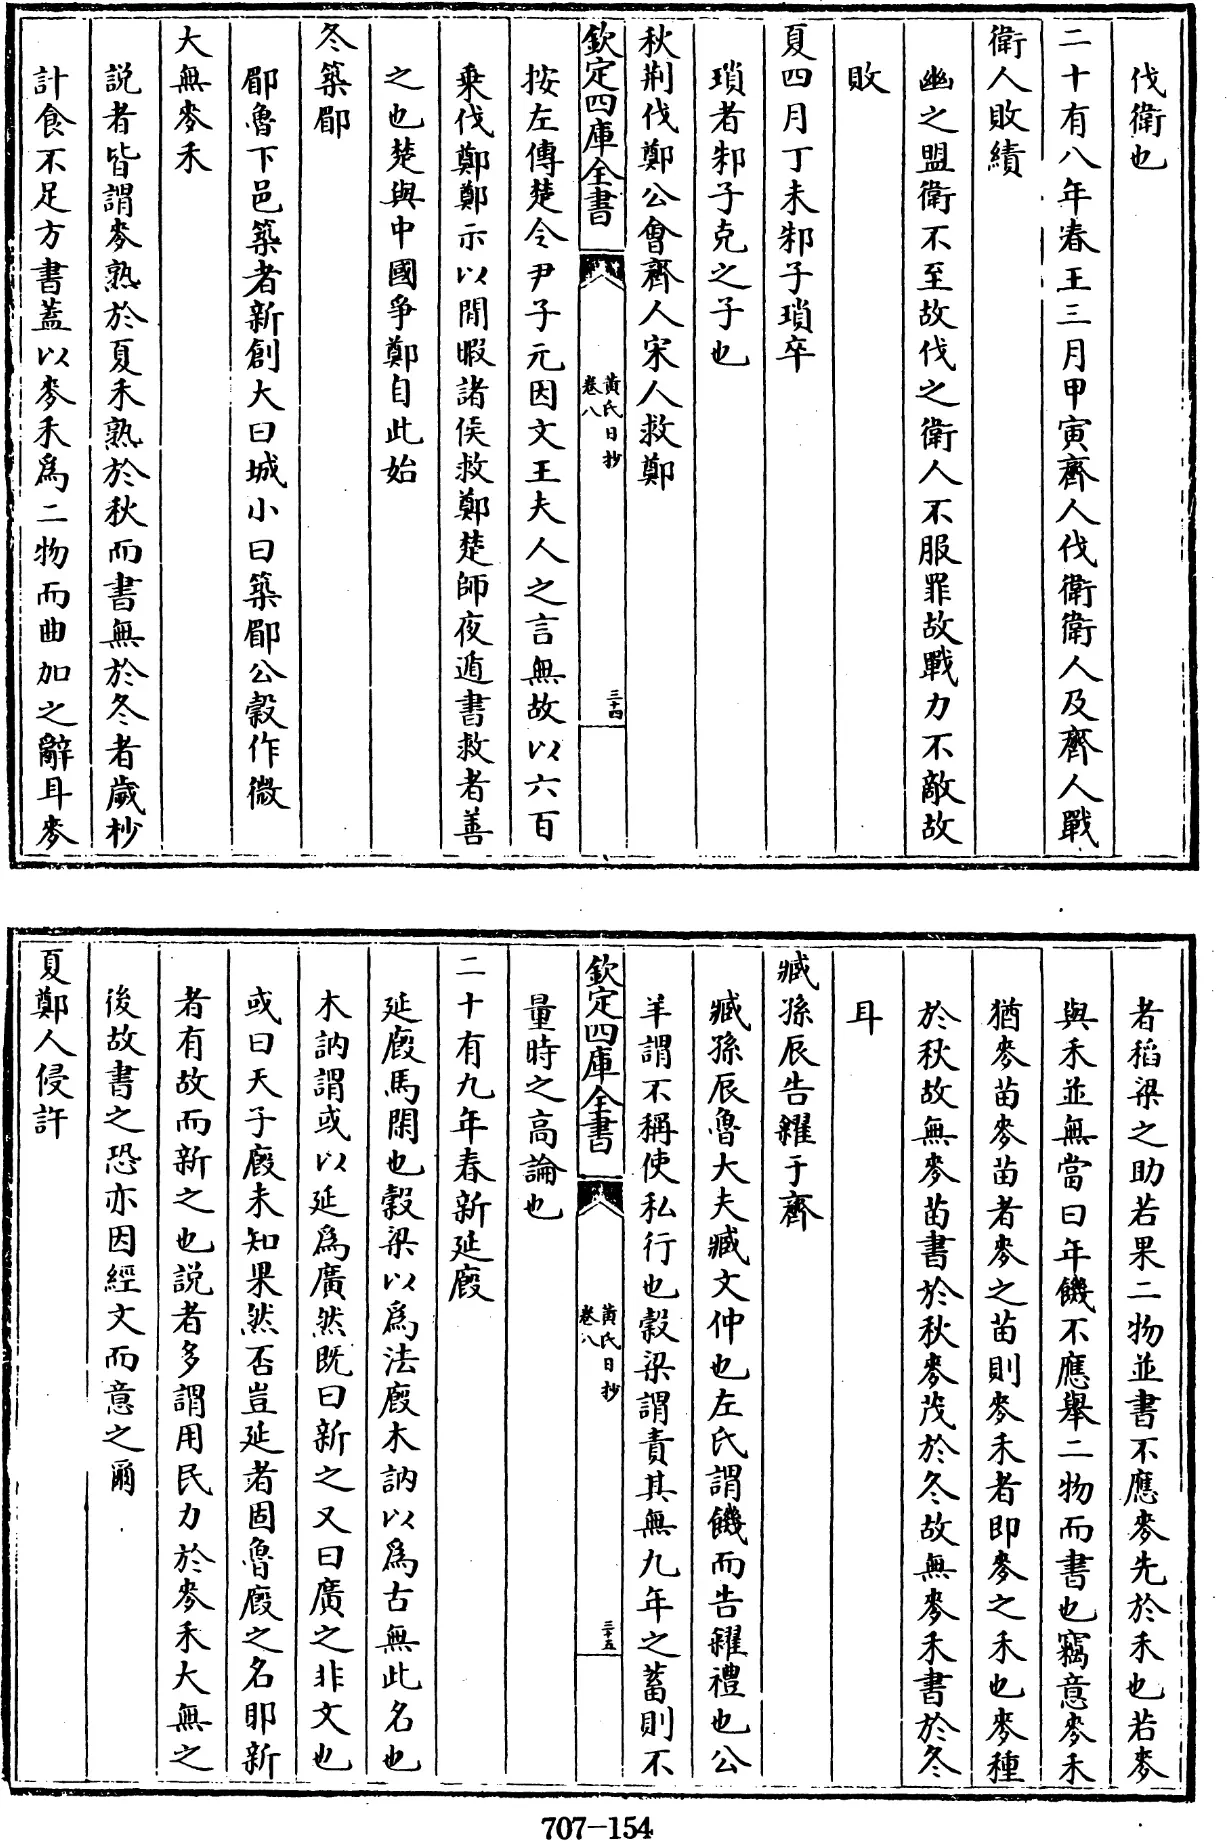 伐衛也
二十有八年春王三月甲寅齊人伐衛衛人及齊人戰
衛人敗績
幽之盟衛不至故伐之衛人不服罪故戰力不敵故
敗
夏四月丁未邾子瑣卒
瑣者邾子克之子也
秋荆伐鄭公會齊人宋人救鄭
欽定四庫全書
黄氏日抄
卷八
三十四
按左傳楚令尹子元因文王夫人之言無故以六百
乗伐鄭鄭示以閒暇諸侯救鄭楚師夜遁書救者善
之也楚與中國爭鄭自此始
冬築郿
郿魯下邑築者新創大曰城小曰築郿公穀作微
大無麥禾
説者皆謂麥熟於夏禾熟於秋而書無於冬者歲杪
計食不足方書蓋以麥禾爲二物而曲加之辭耳麥
者稻梁之助若果二物並書不應麥先於禾也若麥
與禾並無當曰年饑不應舉二物而書也竊意麥禾
猶麥苗麥苗者麥之苗則麥禾者即麥之禾也麥種
於秋故無麥苗書於秋麥茂於冬故無麥禾書於冬
耳
臧孫辰告糴于齊
臧孫辰魯大夫臧文仲也左氏謂饑而告糴禮也公
羊謂不稱使私行也穀梁謂責其無九年之蓄則不
欽定四庫全書
黄氏日抄
卷八
三十五
量時之高論也
二十有九年春新延廏
延廏馬閑也穀梁以爲法廏木訥以爲古無此名也
木訥謂或以延爲廣然既曰新之又曰廣之非文也
或曰天子廏未知果然否豈延者固魯廏之名耶新
者有故而新之也説者多謂用民力於麥禾大無之
後故書之恐亦因經文而意之爾
夏鄭人侵許
707-154